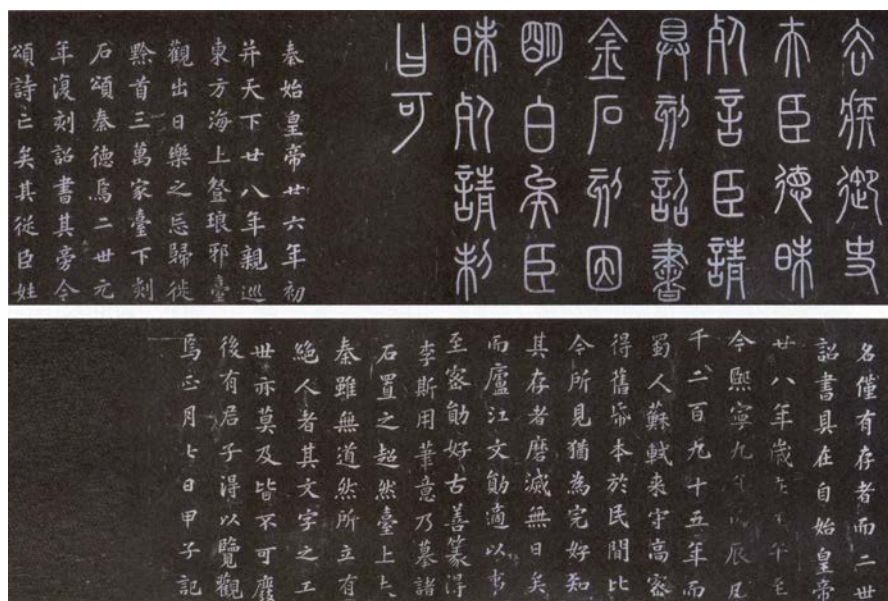 去疾御史
夫臣德昧
死言臣請
具刻詔書
金石刻因
明白矣臣
昧死請制
曰可
秦始皇帝廿六年初
并天下廿八年親巡
東方海上登琅邪臺
觀出日樂之忘歸徙
黔首三萬家臺下刻
石頌秦德焉二世元
年復刻詔書其旁今
頌詩亡矣其從臣姓
名僅有存者而二世
詔書具在自始皇帝
廿八年歲在壬午至
今熙寧九年丙辰凡
千二百九十五年而
蜀人蘇軾來守高密
得舊紙本於民間比
今所見猶為完好知
其存者磨滅無日矣
而廬江文勛適以事
至密勛好古善篆得
李斯用筆意乃摹諸
石置之超然臺上夫
秦雖無道然所立有
絕人者其文字之工
世亦莫及皆不可廢
後有君子得以覽觀
焉正月七日甲子記